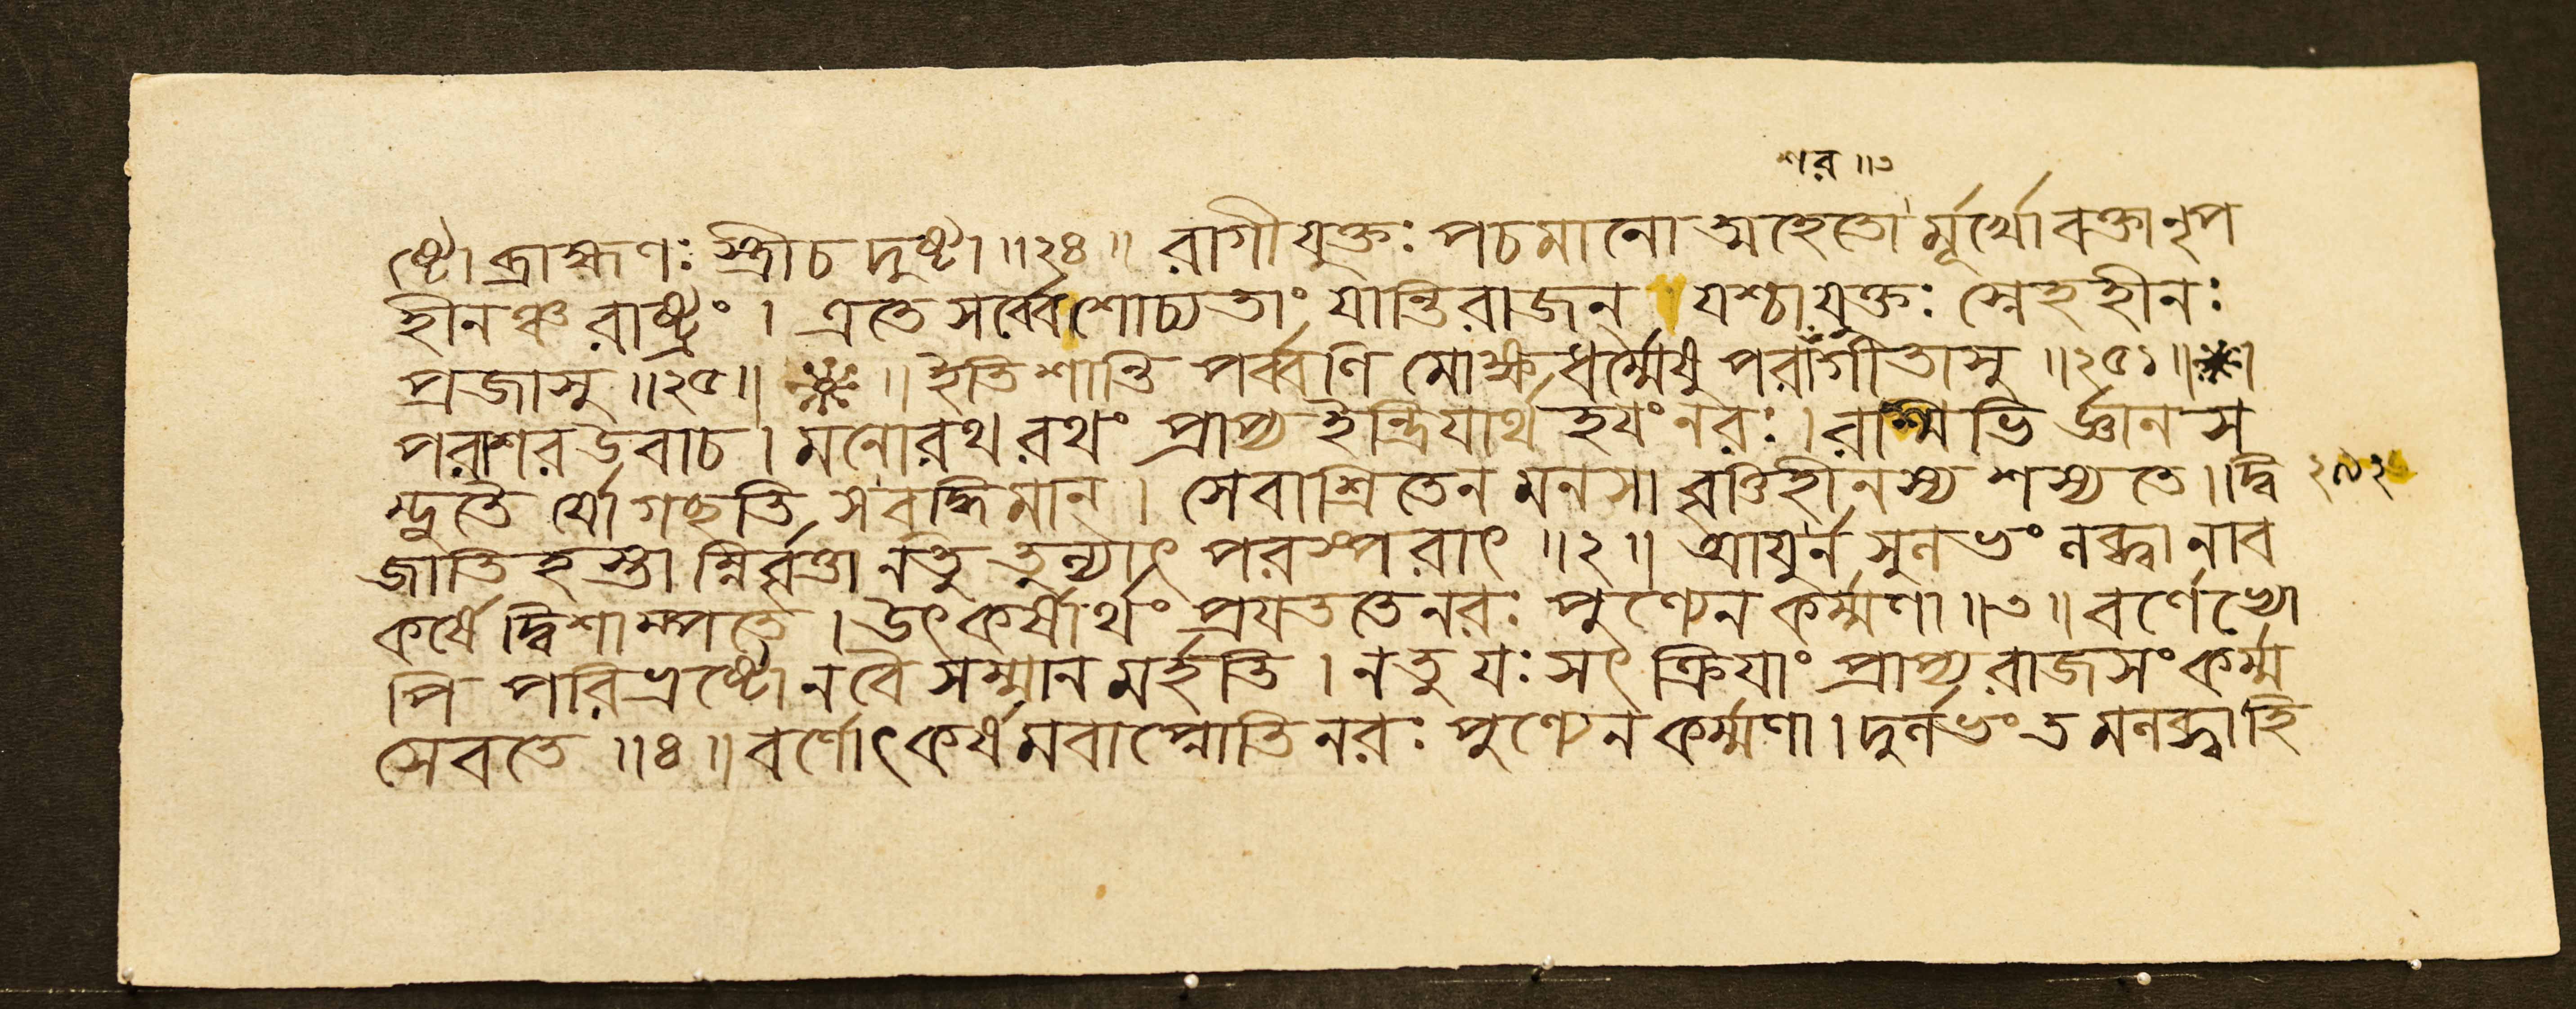 শর ॥৩
ষ্টো ব্রাহ্মণঃ স্ত্রীচ দুষ্টা ॥২৪॥ রাগীযুক্তঃ পচমানো অহেতো র্মূর্খো বক্তানৃপ
হীনঞ্চ রাষ্ট্রং । এতে সর্ব্বে শোচ্যতাং যান্তি রাজন্ যশ্চাযুক্তঃ স্নেহহীনঃ
প্রজাসু ॥২৫॥ ॥ ইতি শান্তি পর্ব্বণি মোক্ষধর্ম্মেষু পরাগীতাসু ॥২৫১॥
পরাশর উবাচ । মনোরথ রথং প্রাপ্য ইন্দ্রিযার্থ হযং নরঃ । রশ্মিভি র্জ্ঞান স
ম্ভূতৈ র্যো গচ্ছতি স বুদ্ধিমান্ । সেবাশ্রিতেন মনসা বৃত্তিহীনস্য শস্যতে । দ্বি ২৯২
জাতি হস্তা ন্নির্বৃত্তা নতু তুল্যাৎ পরস্পরাৎ ॥২॥ আযুর্ন সুলভং লব্ধ্বা নাব
কর্ষে দ্বিশাম্পতে । উৎকর্ষার্থং প্রযততে নরঃ পুণ্যেন কর্ম্মণা ॥৩॥ বর্ণেভ্যো
পি পরিভ্রষ্টো নবৈ সম্মান মর্হতি । নতু যঃ সৎ ক্রিযাং প্রাপ্য রাজসং কর্ম্ম
সেবতে ॥৪॥ বর্ণোৎকর্ষ মবাপ্নোতি নরঃ পুণ্যেন কর্ম্মণা । দুর্লভং ত মলব্ধ্বা হি